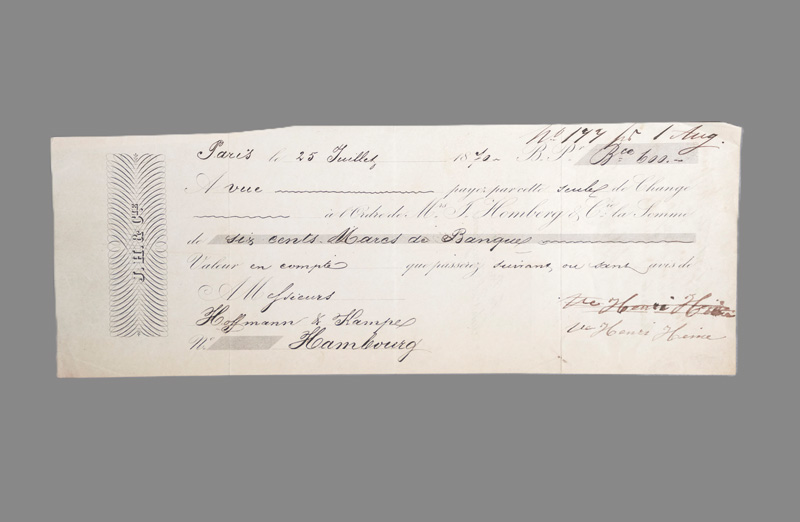 J. H. & Cie
No 177 1 Aug.
Paris le 25 Juillet, 1870 - B. P. Bco 600.-
A vue payez par cette seule de Change
à l'Ordre de Mrs J. Homberg & Cie la Somme
de six cents Marcs de Banque
Valeur en compte que passerez suivant, ou sans avis de
A Messieurs
Hoffmann & Kampe
Vve Henri Heine
Vve Henri Heine
No Hambourg